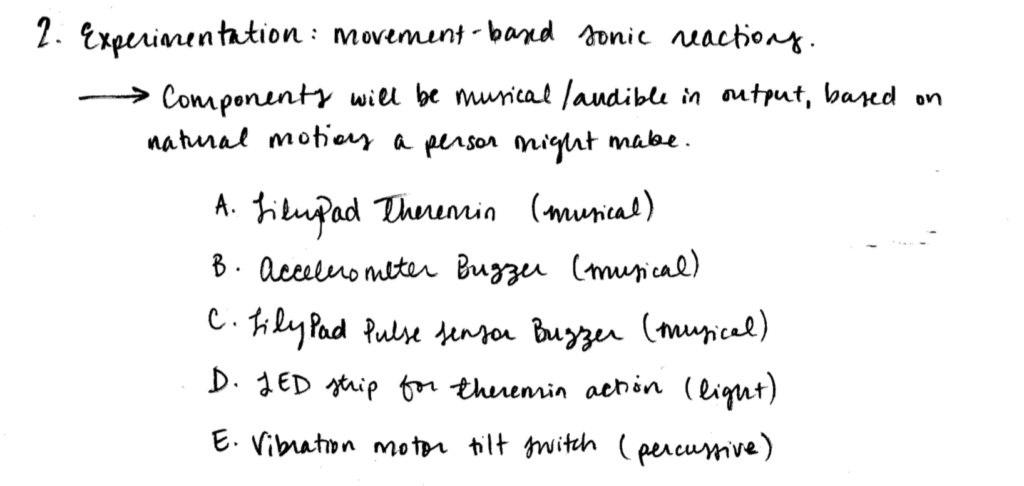 2. Experimentation: movement-based sonic reactions.
→ Components will be musical/audible in output, based on
natural motions a person might make.
A. LilyPad Theremin (musical)
B. Accelerometer Buzzer (musical)
C. LilyPad Pulse sensor Buzzer (musical)
D. LED strip for theremin action (light)
E. Vibration motor tilt switch (percussive)